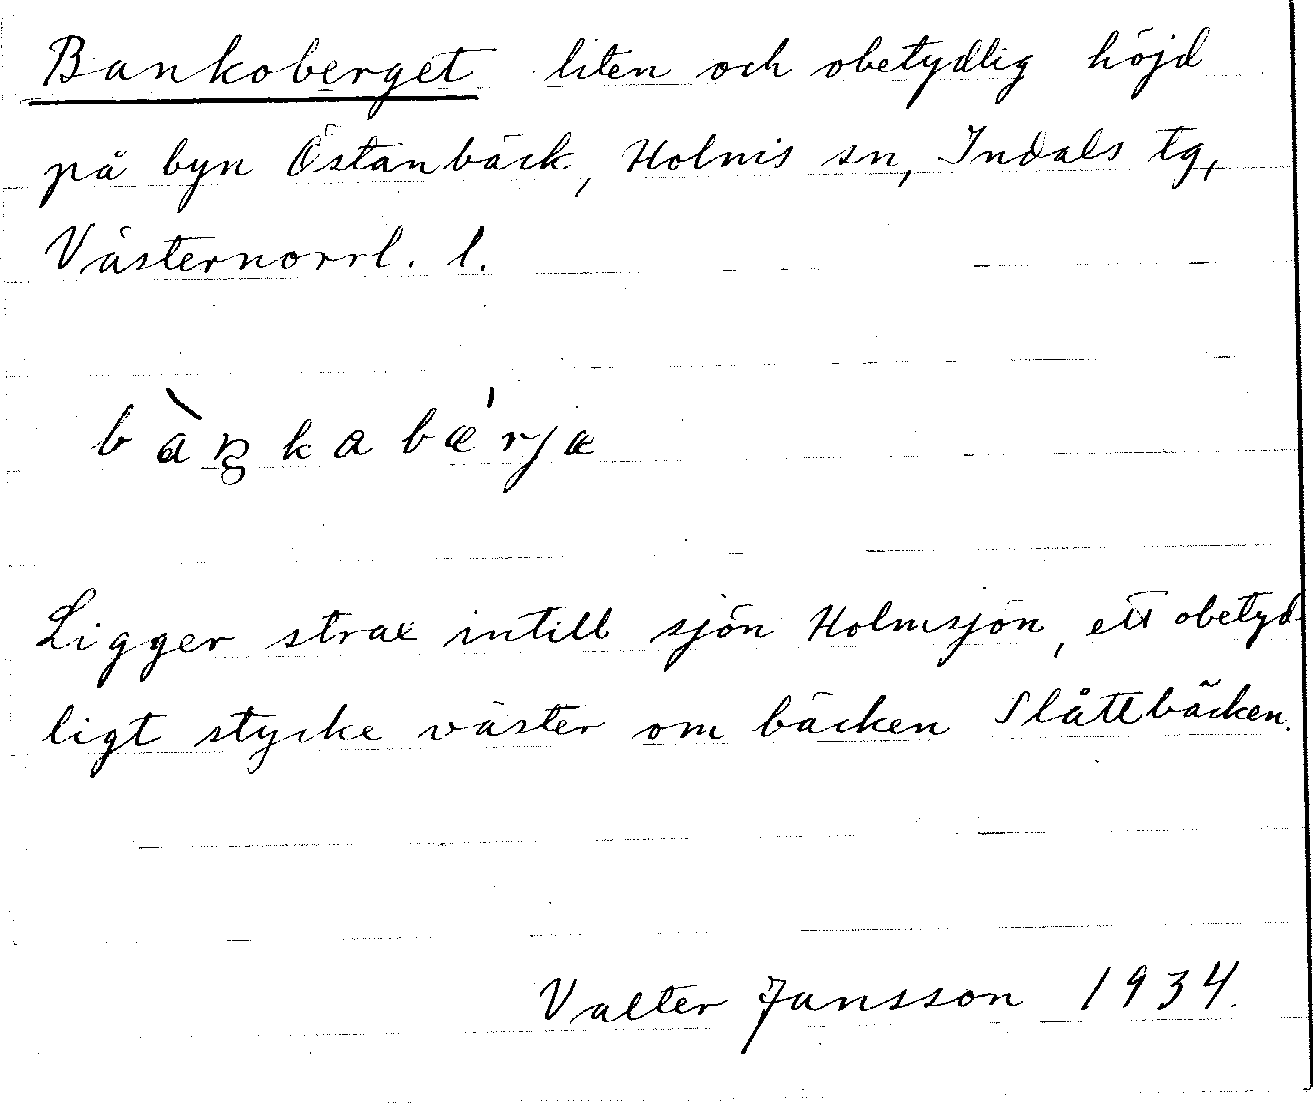 Bankoberget liten och obetydlig höjd
på byn Östanbäck, Holms sn, Indals tg,
Västernorrl. l.
bàŋkabæ'rjæ
Ligger strax intill sjön Holmsjön, ett obetyd-
ligt stycke väster om bäcken Slåttbäcken.
Valter Jansson 1934.